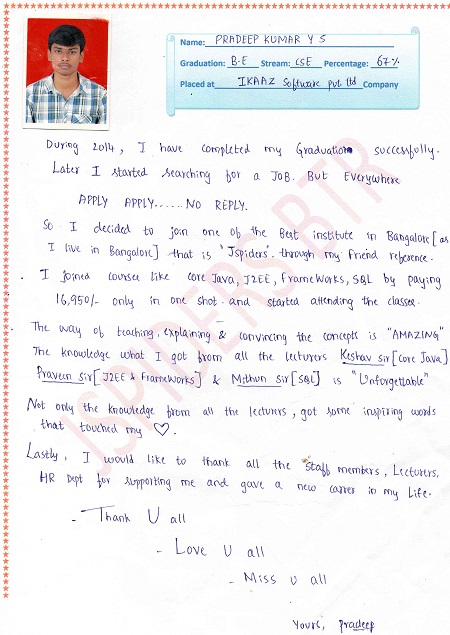 Name: PRADEEP KUMAR Y S
Graduation: B.E Stream: CSE Percentage: 67%
Placed at IKAAZ Software pvt ltd Company
During 2014, I have completed my Graduation successfully.
Later I started searching for a JOB. But Everywhere
APPLY APPLY...... NO REPLY.
So I decided to join one of the Best institute in Bangalore [as
I live in Bangalore] that is 'Jspiders' through my friend reference.
I joined courses like core Java, J2EE, FrameWorks, SQL by paying
16,950/- only in one shot. and started attending the classes.
The way of teaching, explaining & convincing the concepts is "AMAZING"
The knowledge what I got from all the lecturers Keshav sir [core Java]
Praveen Sir [J2EE & FrameWorks] & Mithun Sir [SQL] is "Unforgettable"
Not only the knowledge from all the lecturers, got some inspiring words
that touched my ♡.
Lastly, I would like to thank all the Staff members, Lecturers,
HR Dept for supporting me and gave a new career in my Life.
- Thank U all
- Love U all
- Miss u all
Yours, Pradeep
JSPIDERS BTR